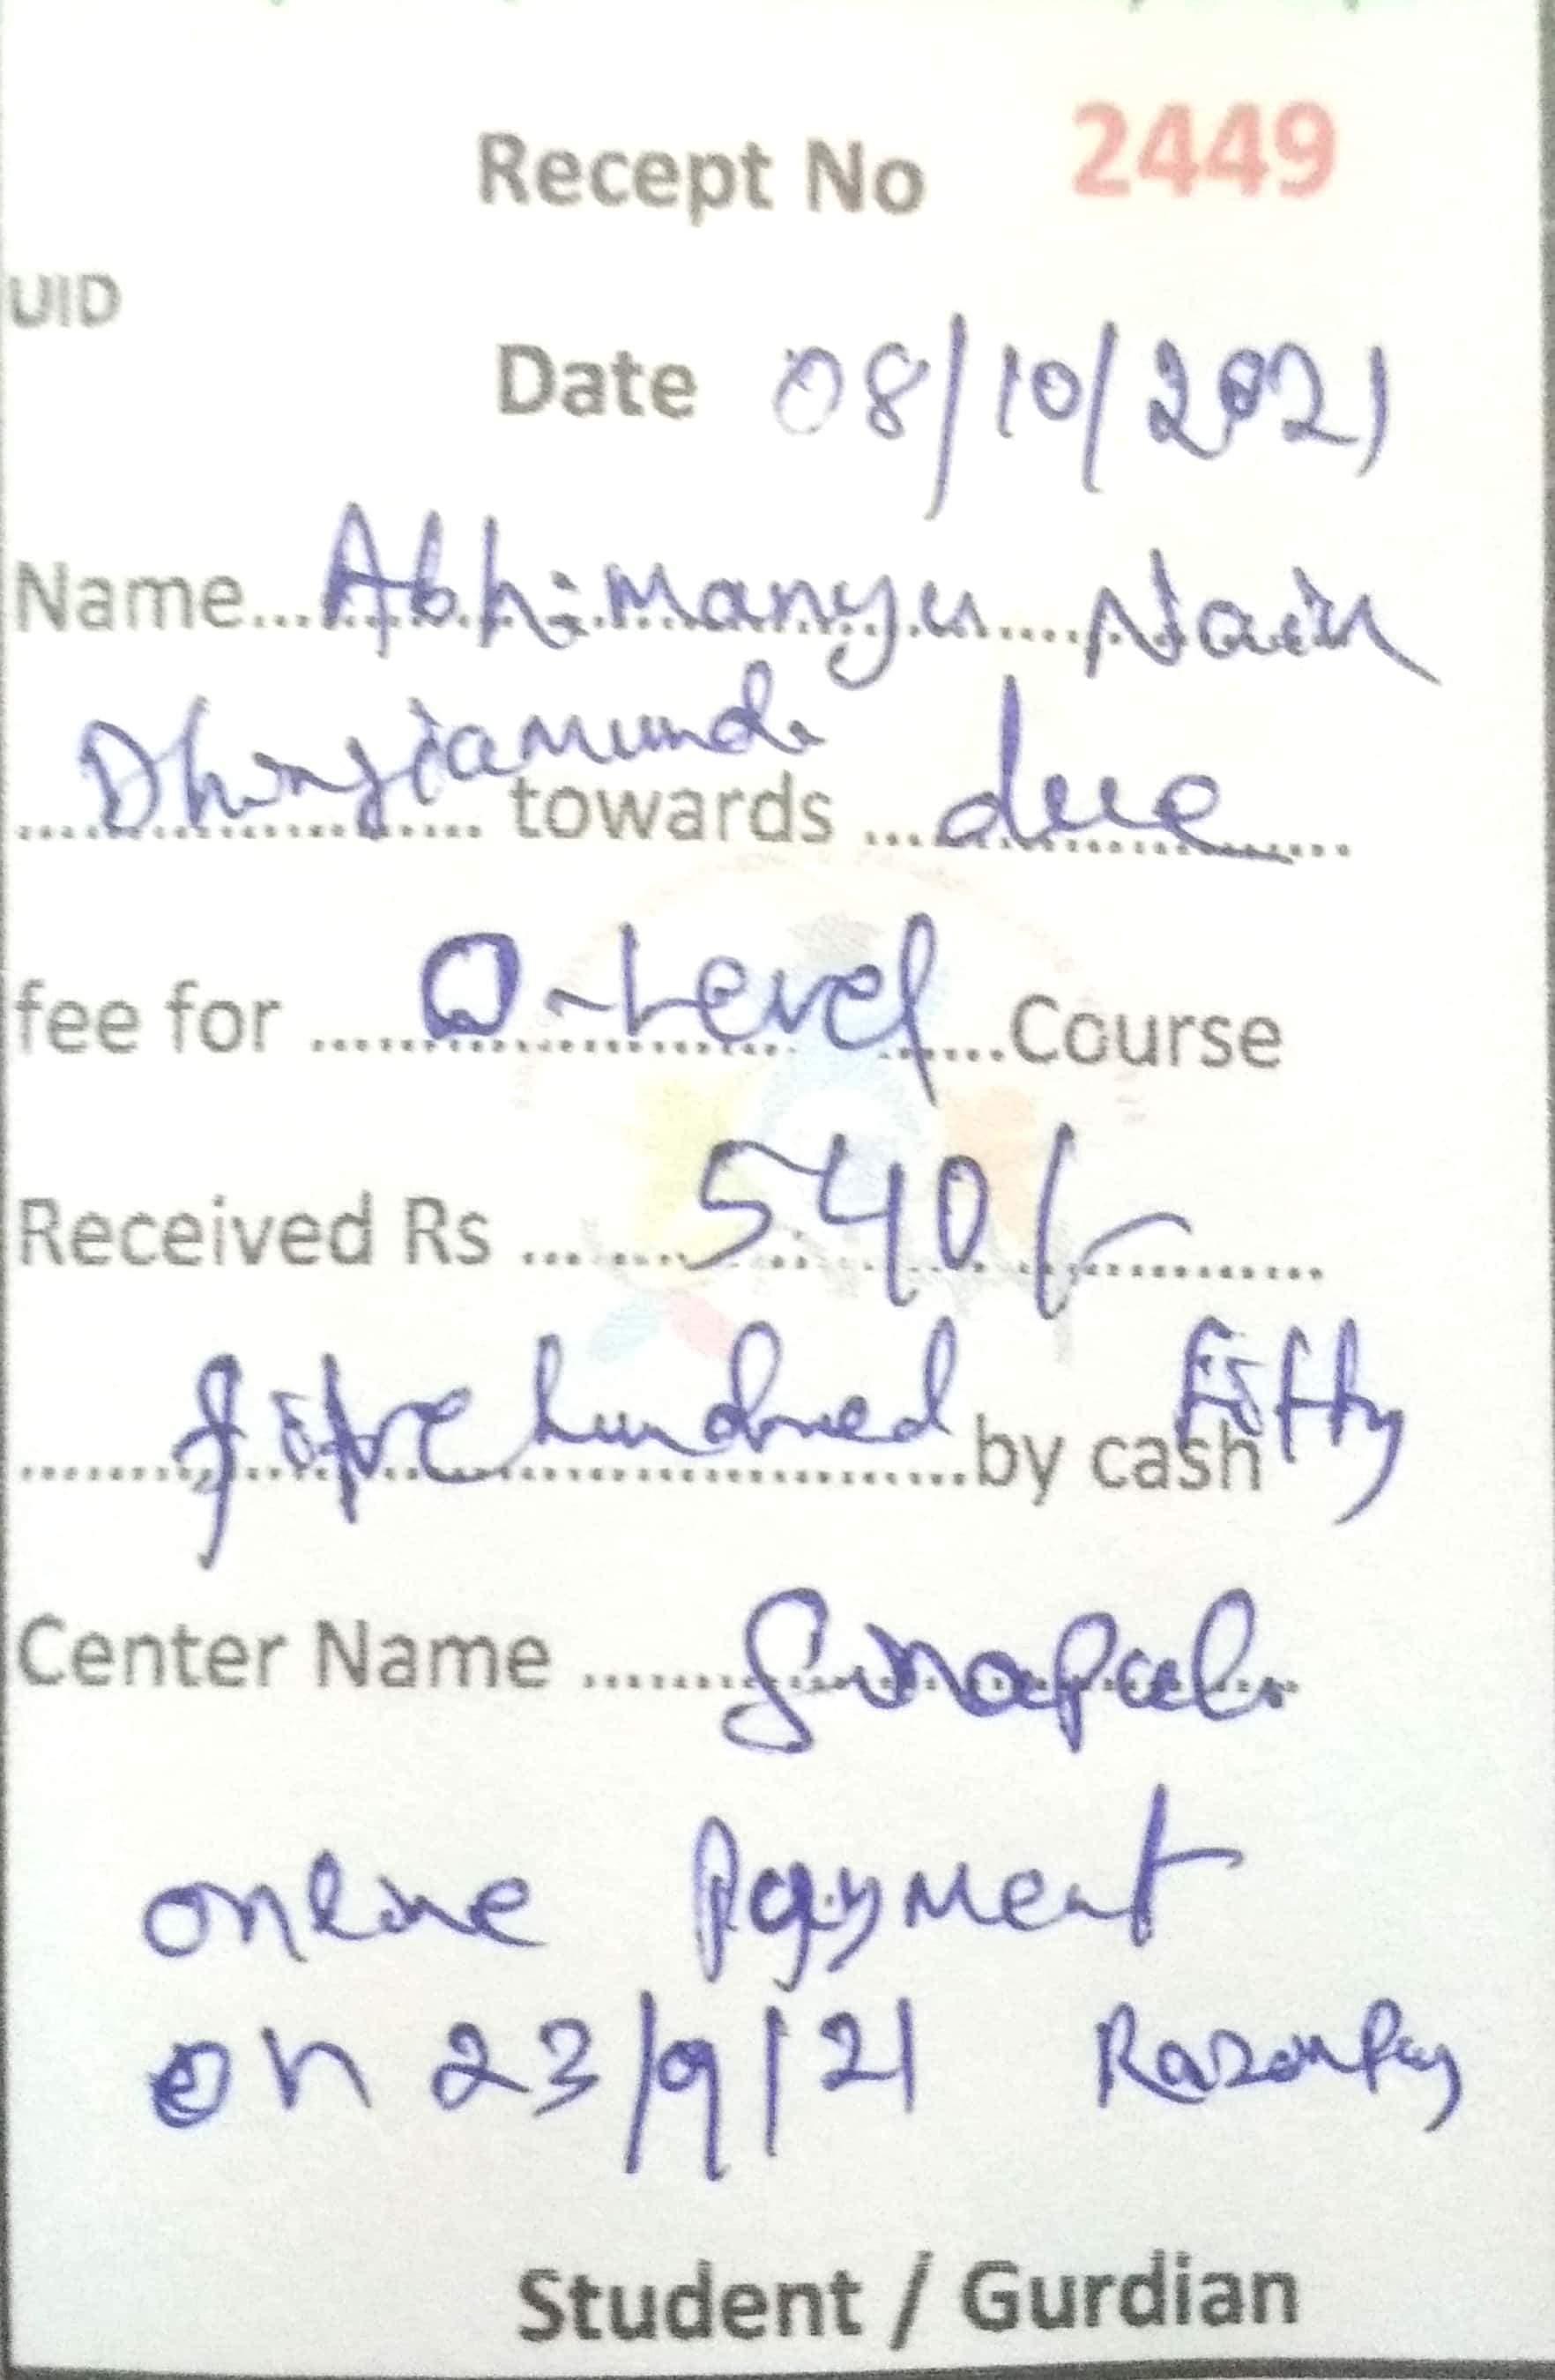 Recept No 2449
UID
Date 08/10/2021
Name... Abhimanyu Naik
Dhingiamunda
towards ... due
fee for ... O-Level ...Course
Received Rs ... 540/-
five hundred by cash Fifty
Center Name ... Sinapali
online Payment
on 23/9/21 RazorPay
Student / Gurdian